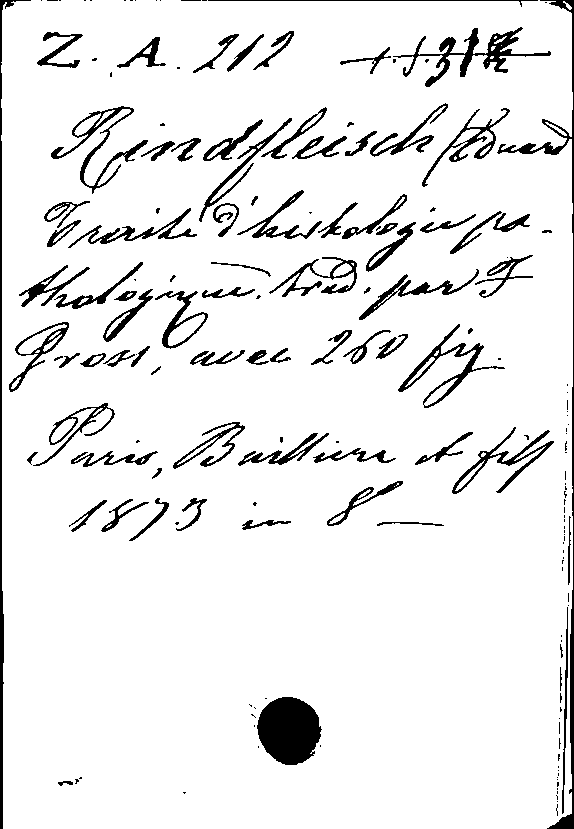 Z. A. 212
Rindfleisch (Eduard
Traité d'histologie pa-
thologique. trad. par F
Gross, avec 260 fig.
Paris, Baillière et fils
1873 in 8° —